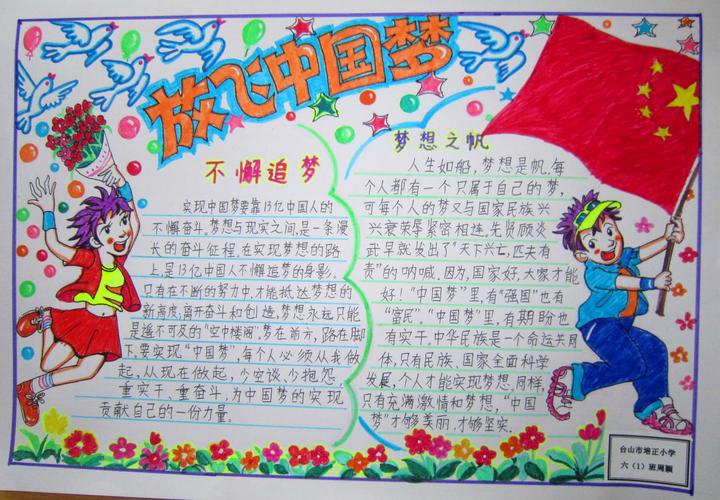 放飞中国梦
不懈追梦
实现中国梦要靠13亿中国人的
不懈奋斗。梦想与现实之间,是一条漫
长的奋斗征程,在实现梦想的路
上,是13亿中国人不懈追梦的身影。
只有在不断的努力中,才能抵达梦想的
新高度,离开奋斗和创造,梦想永远只能
是遥不可及的“空中楼阁”。梦在前方,路在脚
下,要实现“中国梦”,每个人必须从我做
起,从现在做起,少空谈、少抱怨、
重实干、重奋斗,为中国梦的实现
贡献自己的一份力量。
梦想之帆
人生如船,梦想是帆,每
个人都有一个只属于自己的梦,
可每个人的梦又与国家民族兴
兴衰荣辱紧密相连,先贤顾炎
武早就发出了“天下兴亡,匹夫有
责”的呐喊,因为,国家好,大家才能
好!“中国梦”里,有“强国”也有
“富民”。“中国梦”里,有期盼也
有实干,中华民族是一个命运共同
体,只有民族、国家全面科学
发展,个人才能实现梦想.同样,
只有充满激情和梦想,“中国
梦”才够美丽,才够坚实.
台山市培正小学
六(1)班周颖